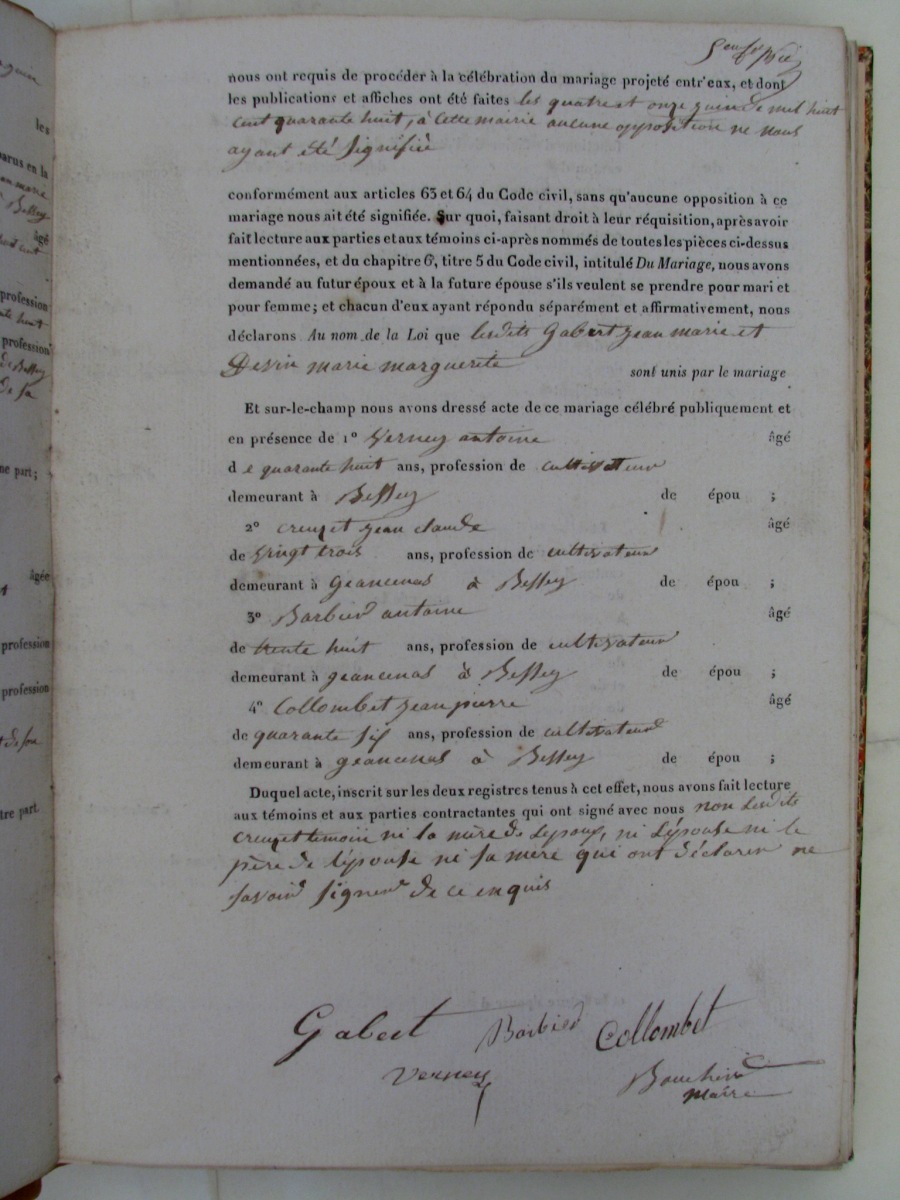 nous ont requis de procéder à la célébration du mariage projeté entr'eux, et dont
les publications et affiches ont été faites les quatre et onze juin de mil huit
cent quarante huit, à cette mairie aucune opposition ne nous
ayant été signifiée
conformément aux articles 63 et 64 du Code civil, sans qu'aucune opposition à ce
mariage nous ait été signifiée. Sur quoi, faisant droit à leur réquisition, après avoir
fait lecture aux parties et aux témoins ci-après nommés de toutes les pièces ci-dessus
mentionnées, et du chapitre 6, titre 5 du Code civil, intitulé Du Mariage, nous avons
demandé au futur époux et à la future épouse s'ils veulent se prendre pour mari et
pour femme; et chacun d'eux ayant répondu séparément et affirmativement, nous
déclarons Au nom de la Loi que lesdits Gabert jean marie et
marie marguerite sont unis par le mariage
Et sur-le-champ nous avons dressé acte de ce mariage célébré publiquement et
en présence de 1° Verney antoine âgé
d e quarante huit ans, profession de cultivateur
demeurant à Bessey de épou ;
2° creuzet jean claude âgé
de vingt trois ans, profession de cultivateur
demeurant à geancenas à Bessey de épou ;
3° Barbier antoine âgé
de trente huit ans, profession de cultivateur
demeurant à geancenas à Bessey de épou ;
4° Collombet jean pierre âgé
de quarante six ans, profession de cultivateur
demeurant à geancenas à Bessey de épou ;
Duquel acte, inscrit sur les deux registres tenus à cet effet, nous avons fait lecture
aux témoins et aux parties contractantes qui ont signé avec nous non ledit
creuzet temoin ni la mère de lepoux, ni l'épouse ni le
père de l'épouse ni sa mère qui ont déclarer ne
savoir signer de ce enquis
Gabert Barbier Collombet
Verney Boucher
maire
les
parus en la
âgé
profession
profession
de Bessey
de sa
ne part;
âgée
profession
profession
tre part